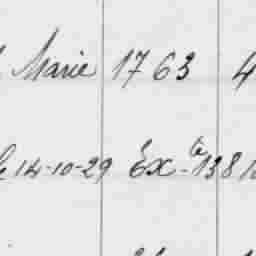 Marie 1763 4
14-10-29 Ex-te 1381